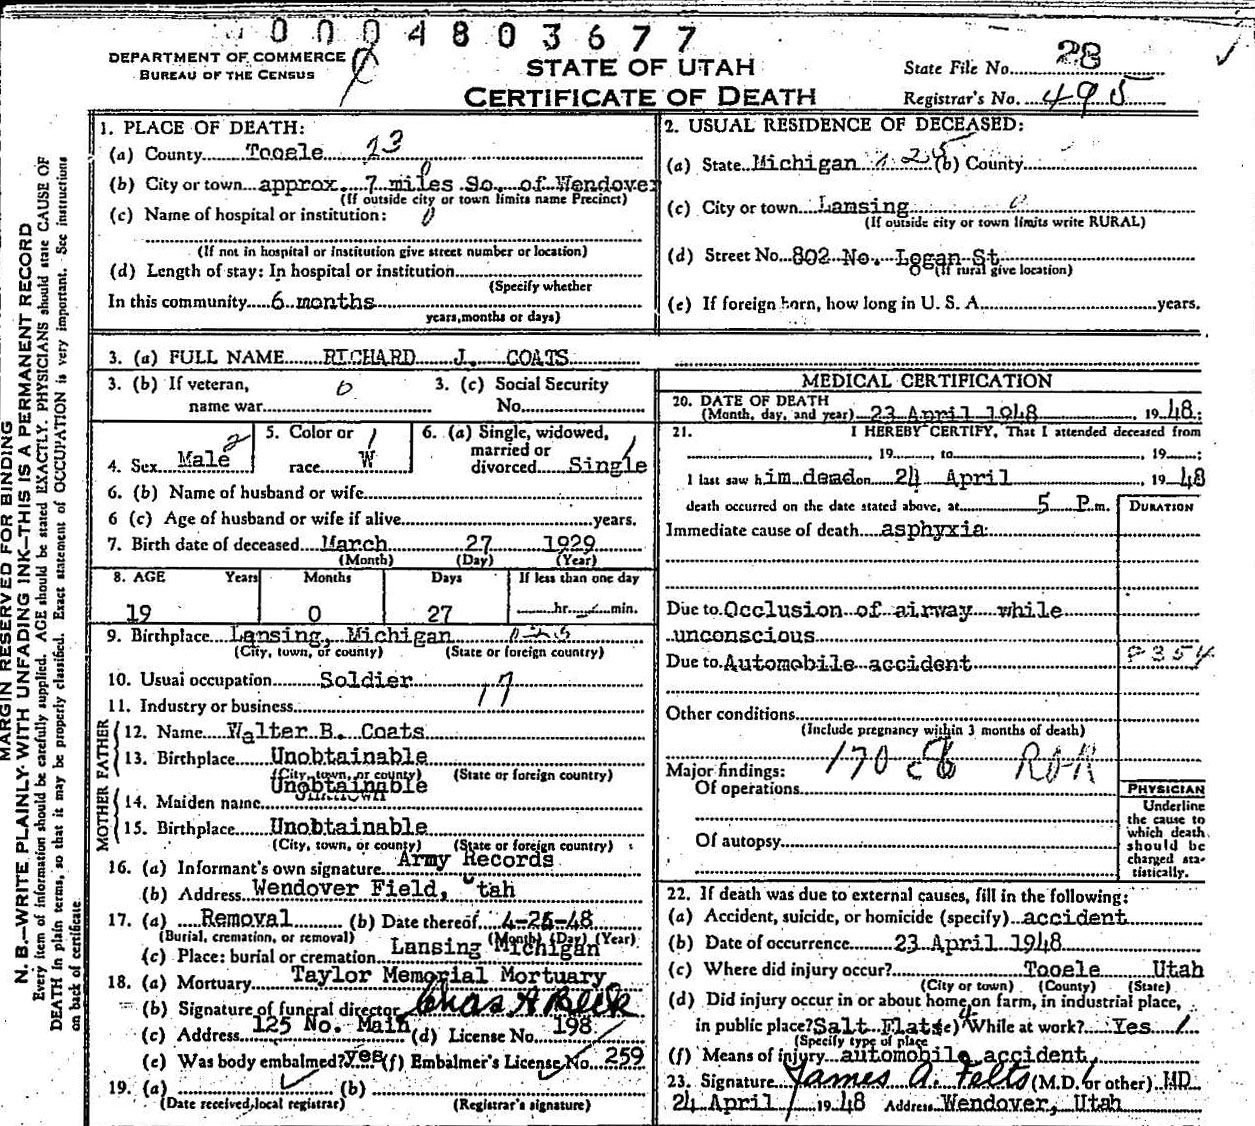 0004803677
DEPARTMENT OF COMMERCE
BUREAU OF THE CENSUS
STATE OF UTAH
CERTIFICATE OF DEATH
State File No. 28
Registrar's No. 495
MARGIN RESERVED FOR BINDING
N. B.—WRITE PLAINLY WITH UNFADING INK—THIS IS A PERMANENT RECORD
Every item of information should be carefully supplied. AGE should be stated EXACTLY. PHYSICIANS should state CAUSE OF
DEATH in plain terms, so that it may be properly classified. Exact statement of OCCUPATION is very important. See instructions
on back of certificate.
1. PLACE OF DEATH:
(a) County Tooele 23
(b) City or town approx. 7 miles So. of Wendover
(If outside city or town limits name Precinct)
(c) Name of hospital or institution: 0
(If not in hospital or institution give street number or location)
(d) Length of stay: In hospital or institution
(Specify whether
In this community 6 months
years, months or days)
2. USUAL RESIDENCE OF DECEASED:
(a) State Michigan (b) County
(c) City or town Lansing 0
(If outside city or town limits write RURAL)
(d) Street No. 802 No. Logan St.
(If rural give location)
(e) If foreign born, how long in U. S. A. years.
3. (a) FULL NAME RICHARD J. COATS
3. (b) If veteran, 0
name war
3. (c) Social Security
No.
4. Sex Male 2
5. Color or 1
race W
6. (a) Single, widowed,
married or
divorced Single 1
6. (b) Name of husband or wife
6 (c) Age of husband or wife if alive years.
7. Birth date of deceased March 27 1929
(Month) (Day) (Year)
8. AGE Years Months Days If less than one day
19 0 27 hr. min.
9. Birthplace Lansing, Michigan
(City, town, or county) (State or foreign country)
10. Usual occupation Soldier 17
11. Industry or business
FATHER
12. Name Walter B. Coats
13. Birthplace Unobtainable
(City, town, or county) (State or foreign country)
MOTHER
14. Maiden name Unobtainable
15. Birthplace Unobtainable
(City, town, or county) (State or foreign country)
16. (a) Informant's own signature Army Records
(b) Address Wendover Field, Utah
17. (a) Removal (b) Date thereof 4-26-48
(Burial, cremation, or removal) (Month) (Day) (Year)
(c) Place: burial or cremation Lansing Michigan
18. (a) Mortuary Taylor Memorial Mortuary
(b) Signature of funeral director Chas A Beck
(c) Address 125 No. Main (d) License No. 198
(e) Was body embalmed? yes (f) Embalmer's License No. 259
19. (a) (b)
(Date received, local registrar) (Registrar's signature)
MEDICAL CERTIFICATION
20. DATE OF DEATH
(Month, day, and year) 23 April 1948, 1948;
21. I HEREBY CERTIFY, That I attended deceased from
, 19 , to , 19 ;
I last saw him dead on 24 April, 1948
death occurred on the date stated above, at 5 P.m.
DURATION
Immediate cause of death asphyxia
Due to Occlusion of airway while
unconscious
Due to Automobile accident
Other conditions
(Include pregnancy within 3 months of death)
170 c8
Major findings:
Of operations
Of autopsy
PHYSICIAN
Underline
the cause to
which death
should be
charged sta-
tistically.
22. If death was due to external causes, fill in the following:
(a) Accident, suicide, or homicide (specify) accident
(b) Date of occurrence 23 April 1948
(c) Where did injury occur? Tooele Utah
(City or town) (County) (State)
(d) Did injury occur in or about home, on farm, in industrial place,
in public place? Salt Flats (e) While at work? Yes
(Specify type of place
(f) Means of injury automobile accident
23. Signature James A. Felts (M.D. or other) MD
24 April 1948 Address Wendover, Utah